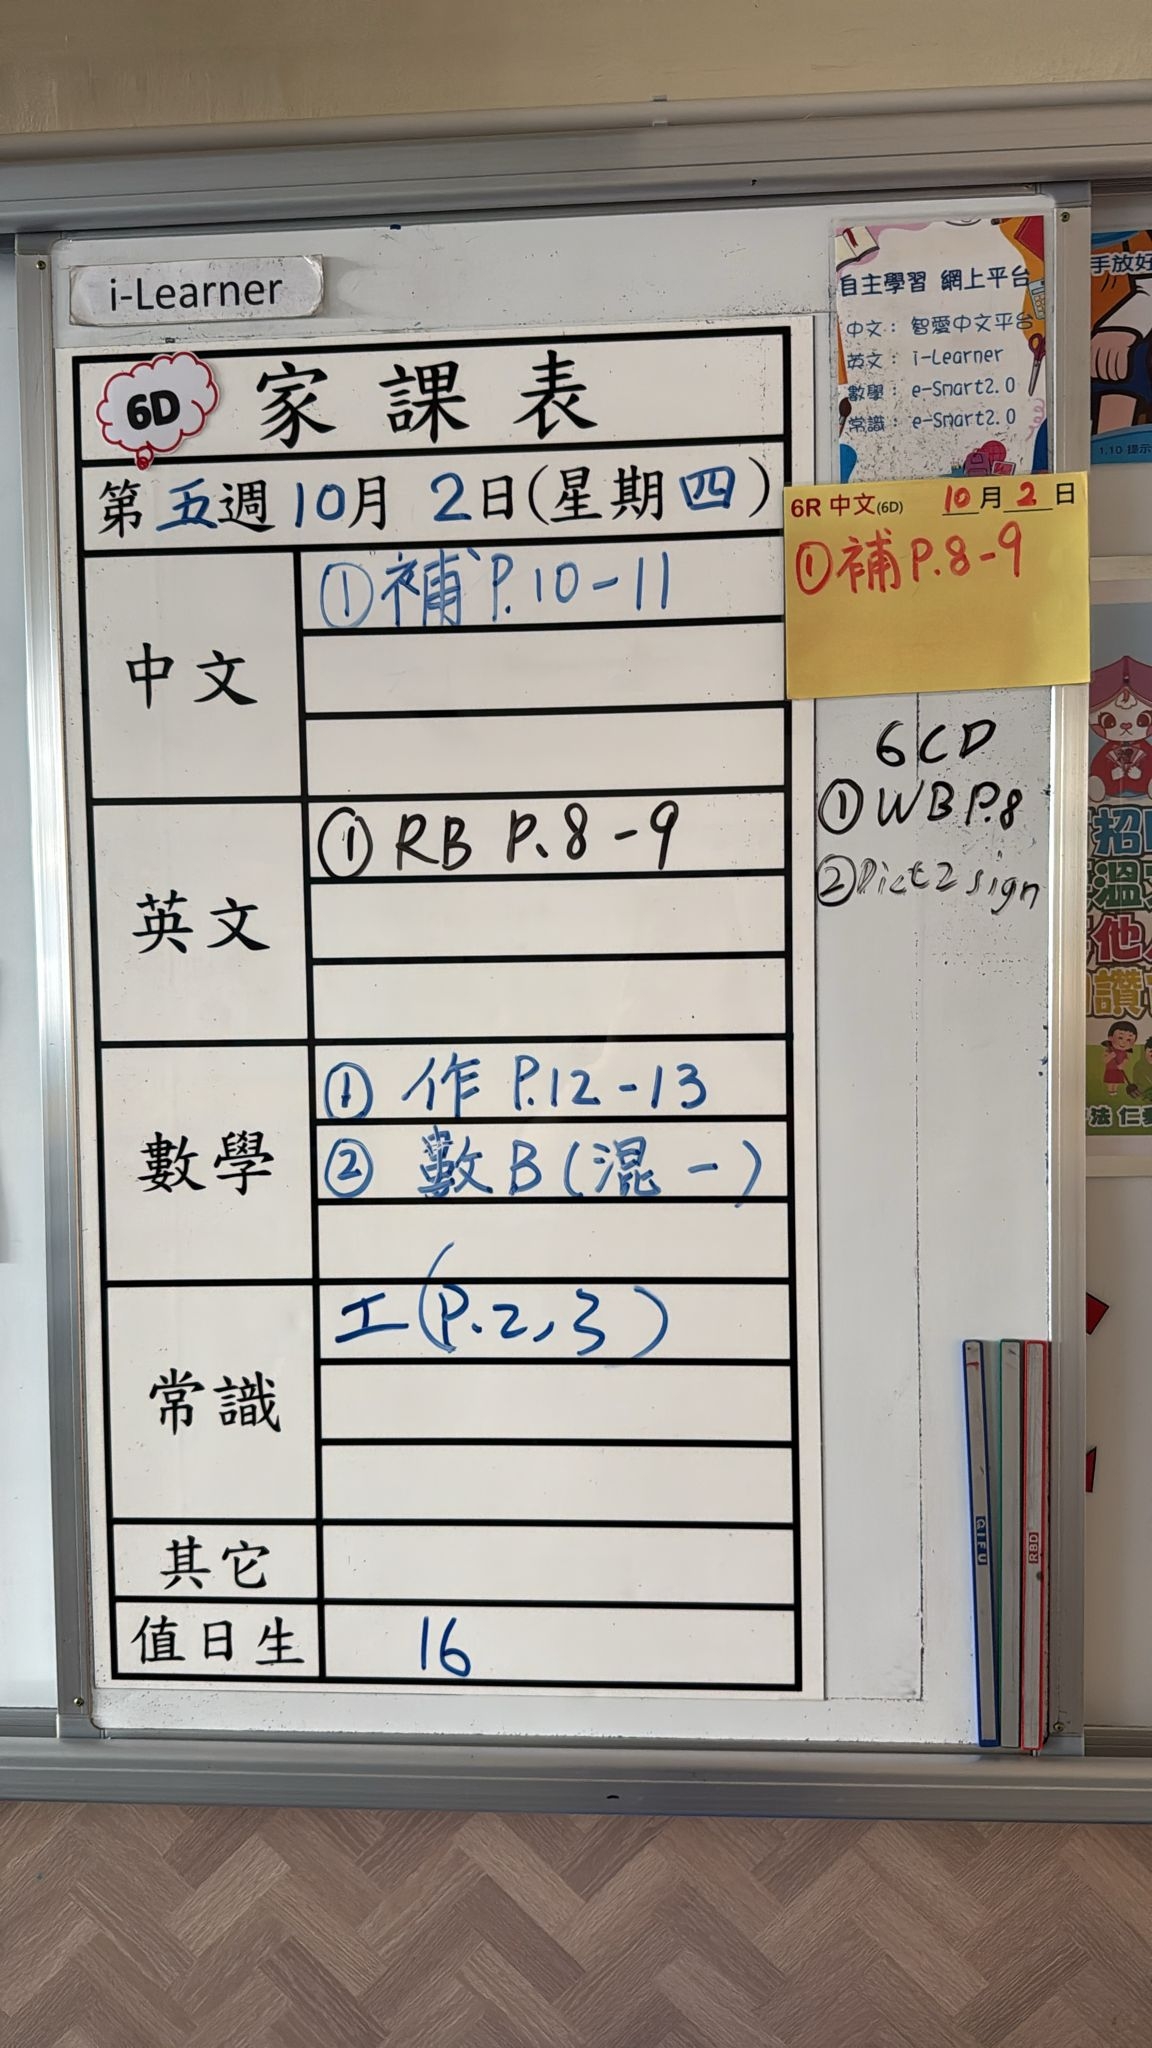 i-Learner
6D 家課表
第五週10月2日(星期四)
中文
①補P.10-11
英文
①RB P.8-9
數學
① 作 P.12-13
② 數B(混一)
常識
工(P.2,3)
其它
值日生
16
自主學習 網上平台
中文：智愛中文平台
英文：i-Learner
數學：e-Smart2.0
常識：e-Smart2.0
6R 中文(6D) 10月2日
①補P.8-9
6CD
①WB P.8
②Dict 2 sign
手放好
1.10 提示
招
溫
他
讚
法 仁
QIFU
RBD